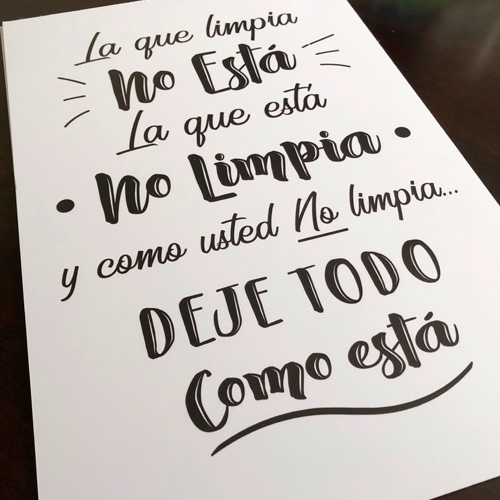 La que limpia
No Está
La que está
• No Limpia •
y como usted No limpia...
DEJE TODO
Como está